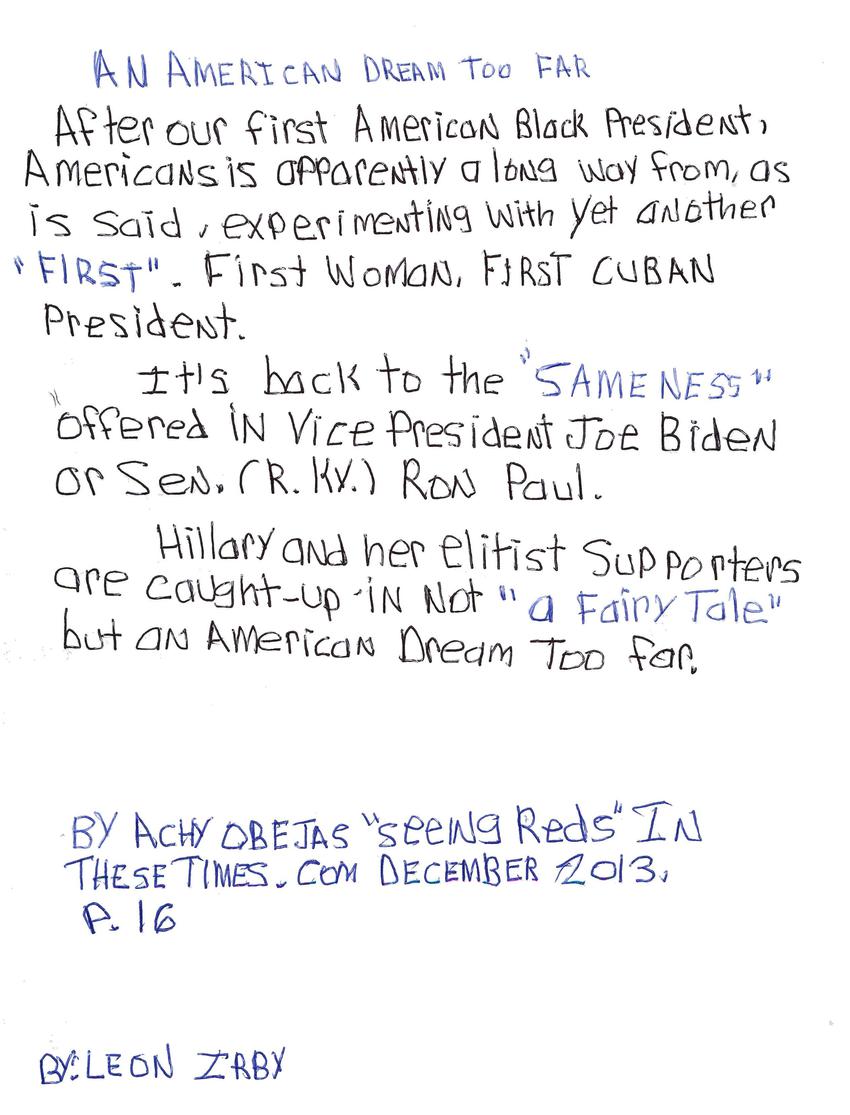 AN AMERICAN DREAM TOO FAR
After our first American Black President,
Americans is apparently a long way from, as
is said, experimenting with yet another
"FIRST". First Woman, FIRST CUBAN
President.
It's back to the "SAMENESS"
offered IN Vice President Joe Biden
or Sen. (R. KY.) Ron Paul.
Hillary and her elitist Supporters
are caught-up in Not "a Fairy Tale"
but an American Dream Too far.
BY ACHY OBEJAS "seeing Reds" IN
THESETIMES.COM DECEMBER 2013,
P. 16
BY: LEON IRBY